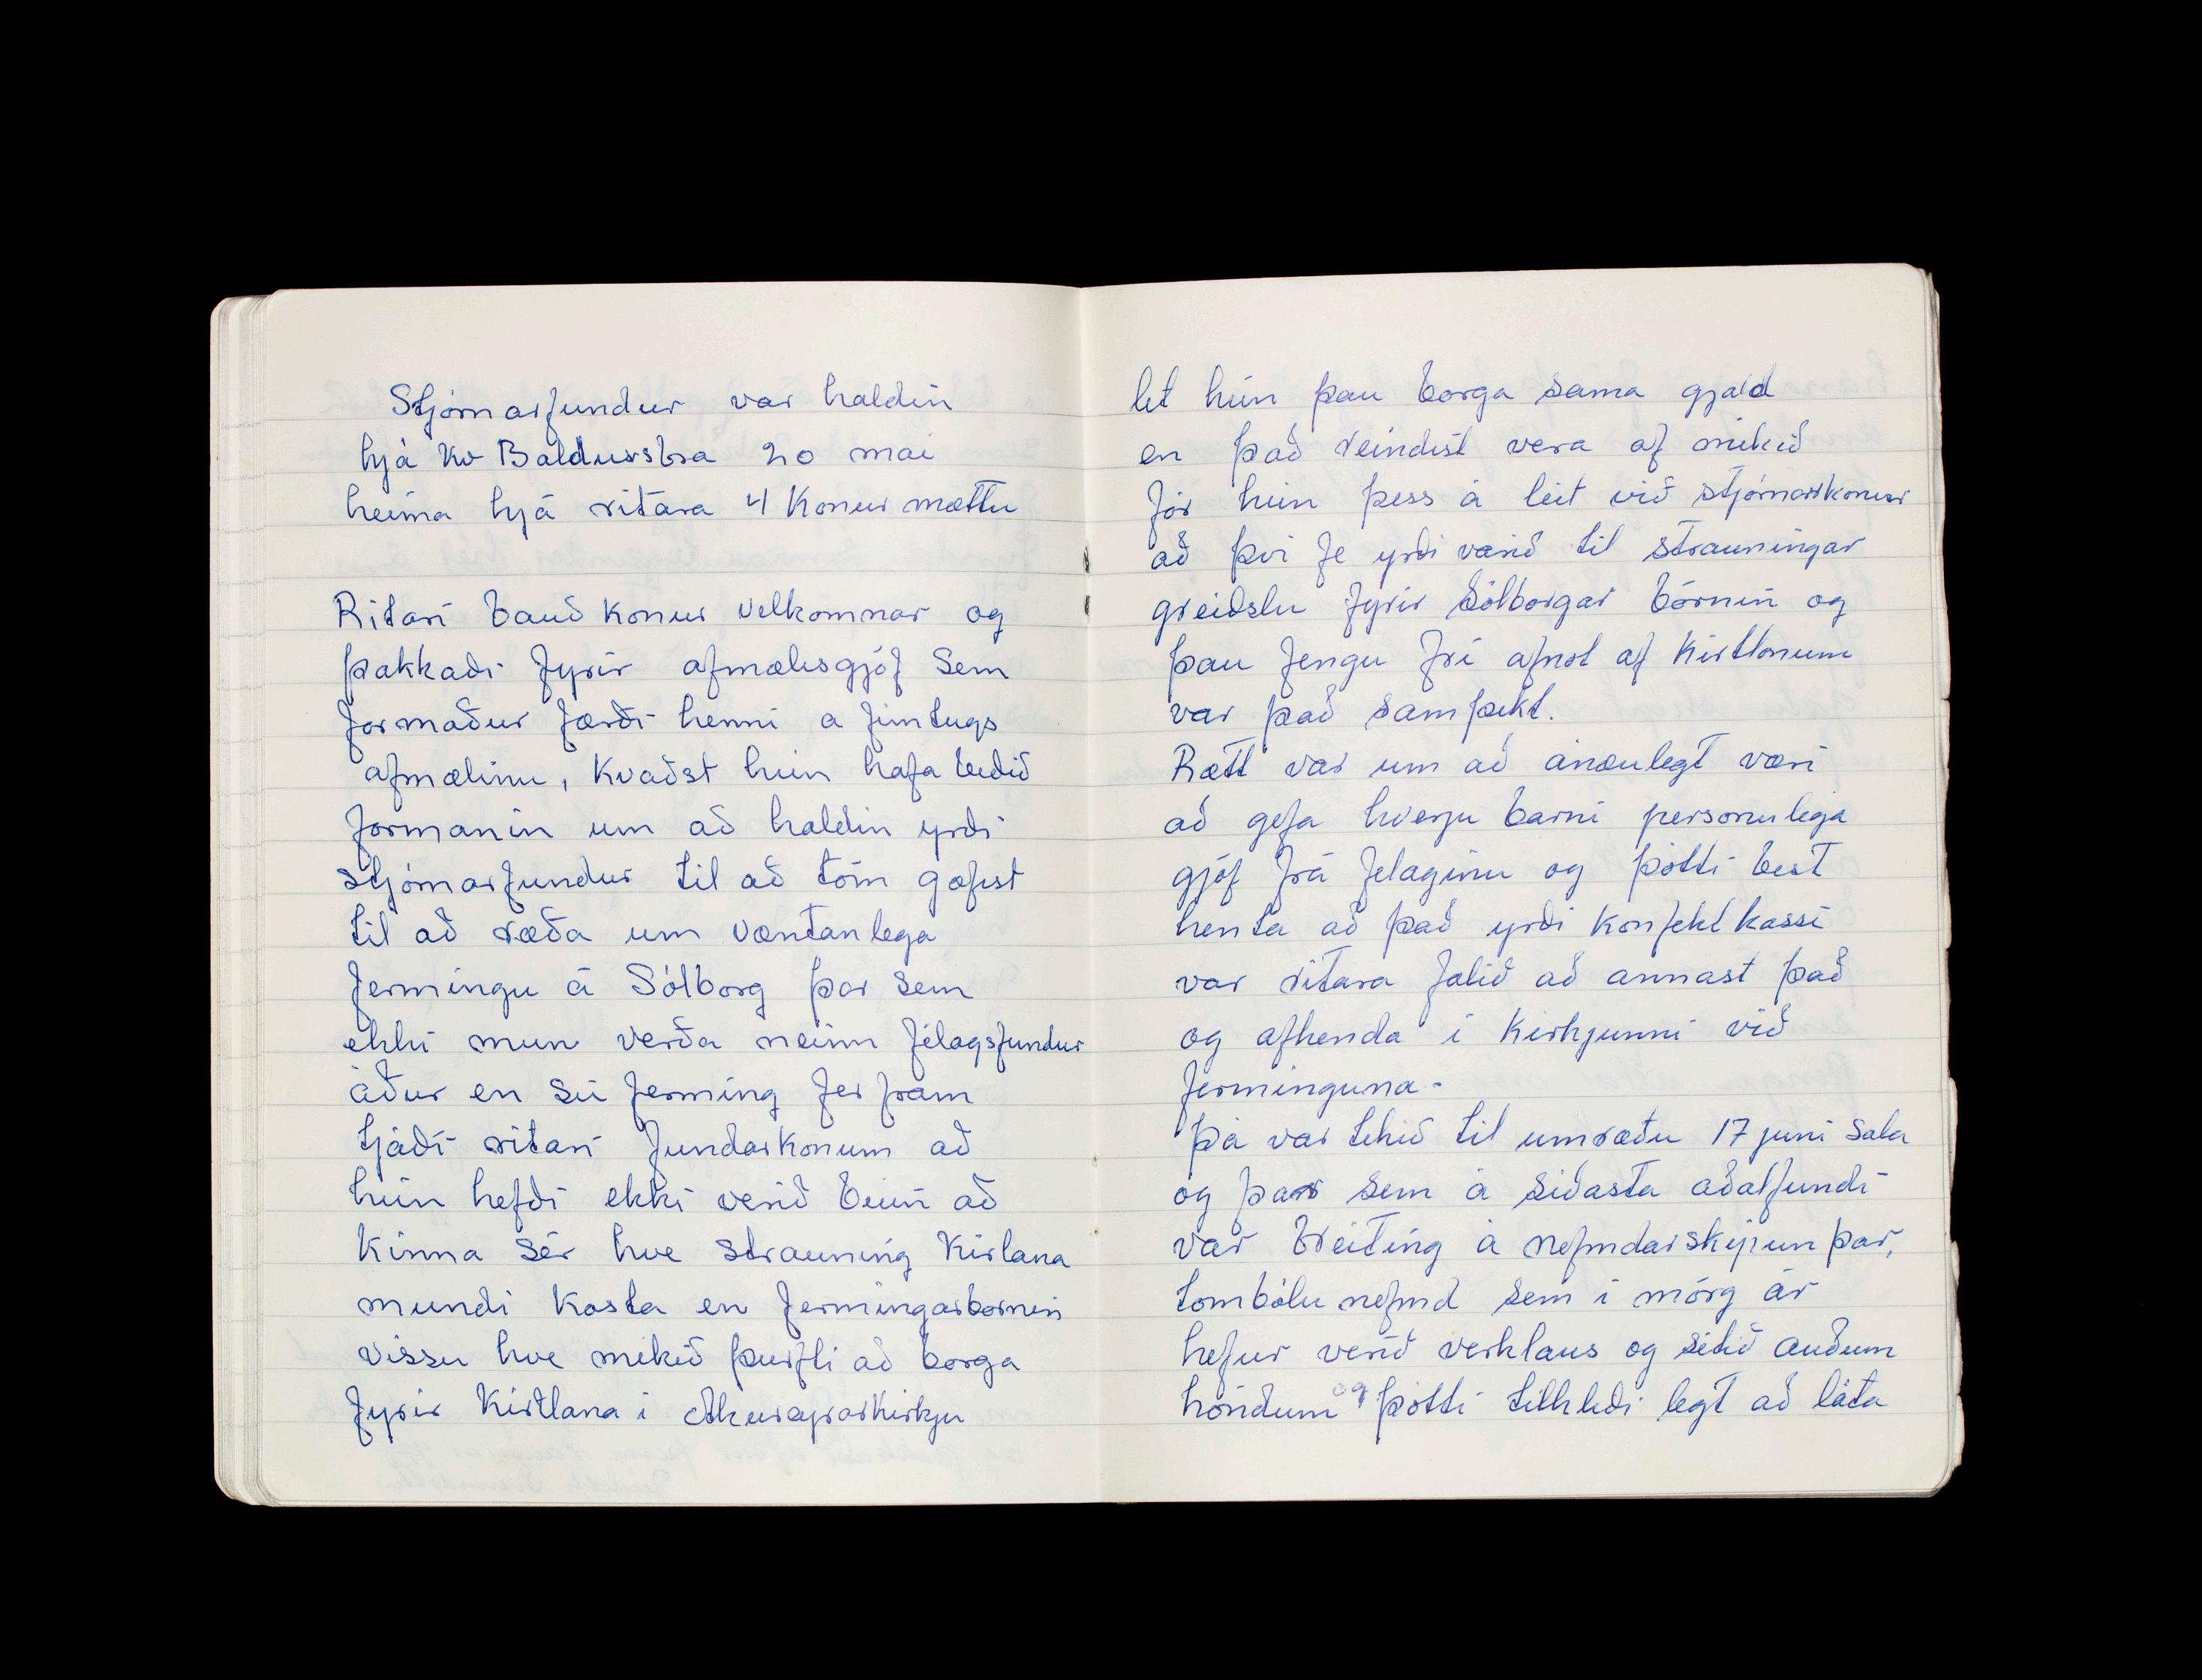 Stjórnarfundur var haldin
hjá Kv Baldursbrá 20 mai
heima hjá ritara 4 Konur mættu
Ritari bauð konur velkomnar og
þakkaði fyrir afmælisgjöf sem
formaður færði henni a fimtugs
afmælinu, Kvaðst hún hafa beðið
formanin um að haldin yrði
stjórnarfundur til að tóm gæfist
til að ræða um væntanlega
fermingu á Sólborg þar sem
ekki mun verða neinn félagsfundur
áður en sú ferming fer fram
tjáði ritari fundarkonum að
hún hefði ekki verið búin að
Kinna sér hve strauning Kirlana
mundi Kosta en fermingarbörnin
vissu hve mikið þurfti að borga
fyrir Kirtlana i Akureyrarkirkju
let hún þau borga sama gjald
en það reindist vera of mikið
fór hún þess á leit við stjórnarkonur
að þvi fe yrði varið til strauningar
greiðslu fyrir Sólborgar börnin og
þau fengu fri afnot af Kirtlonum
var það samþikt.
Rætt var um að ánæulegt væri
að gefa hverju barni personulega
gjöf frá felaginu og þótti best
henta að það yrði Konfektkassi
var ritara falið að annast það
og afhenda i Kirkjunni við
ferminguna -
þá var tekið til umræðu 17 juni sala
og þar sem á siðasta aðalfundi
var breiting á nefndarskipun þar,
tombólu nefnd sem i mörg ár
hefur verið verklaus og setið auðum
höndum og þótti tilhliði legt að láta